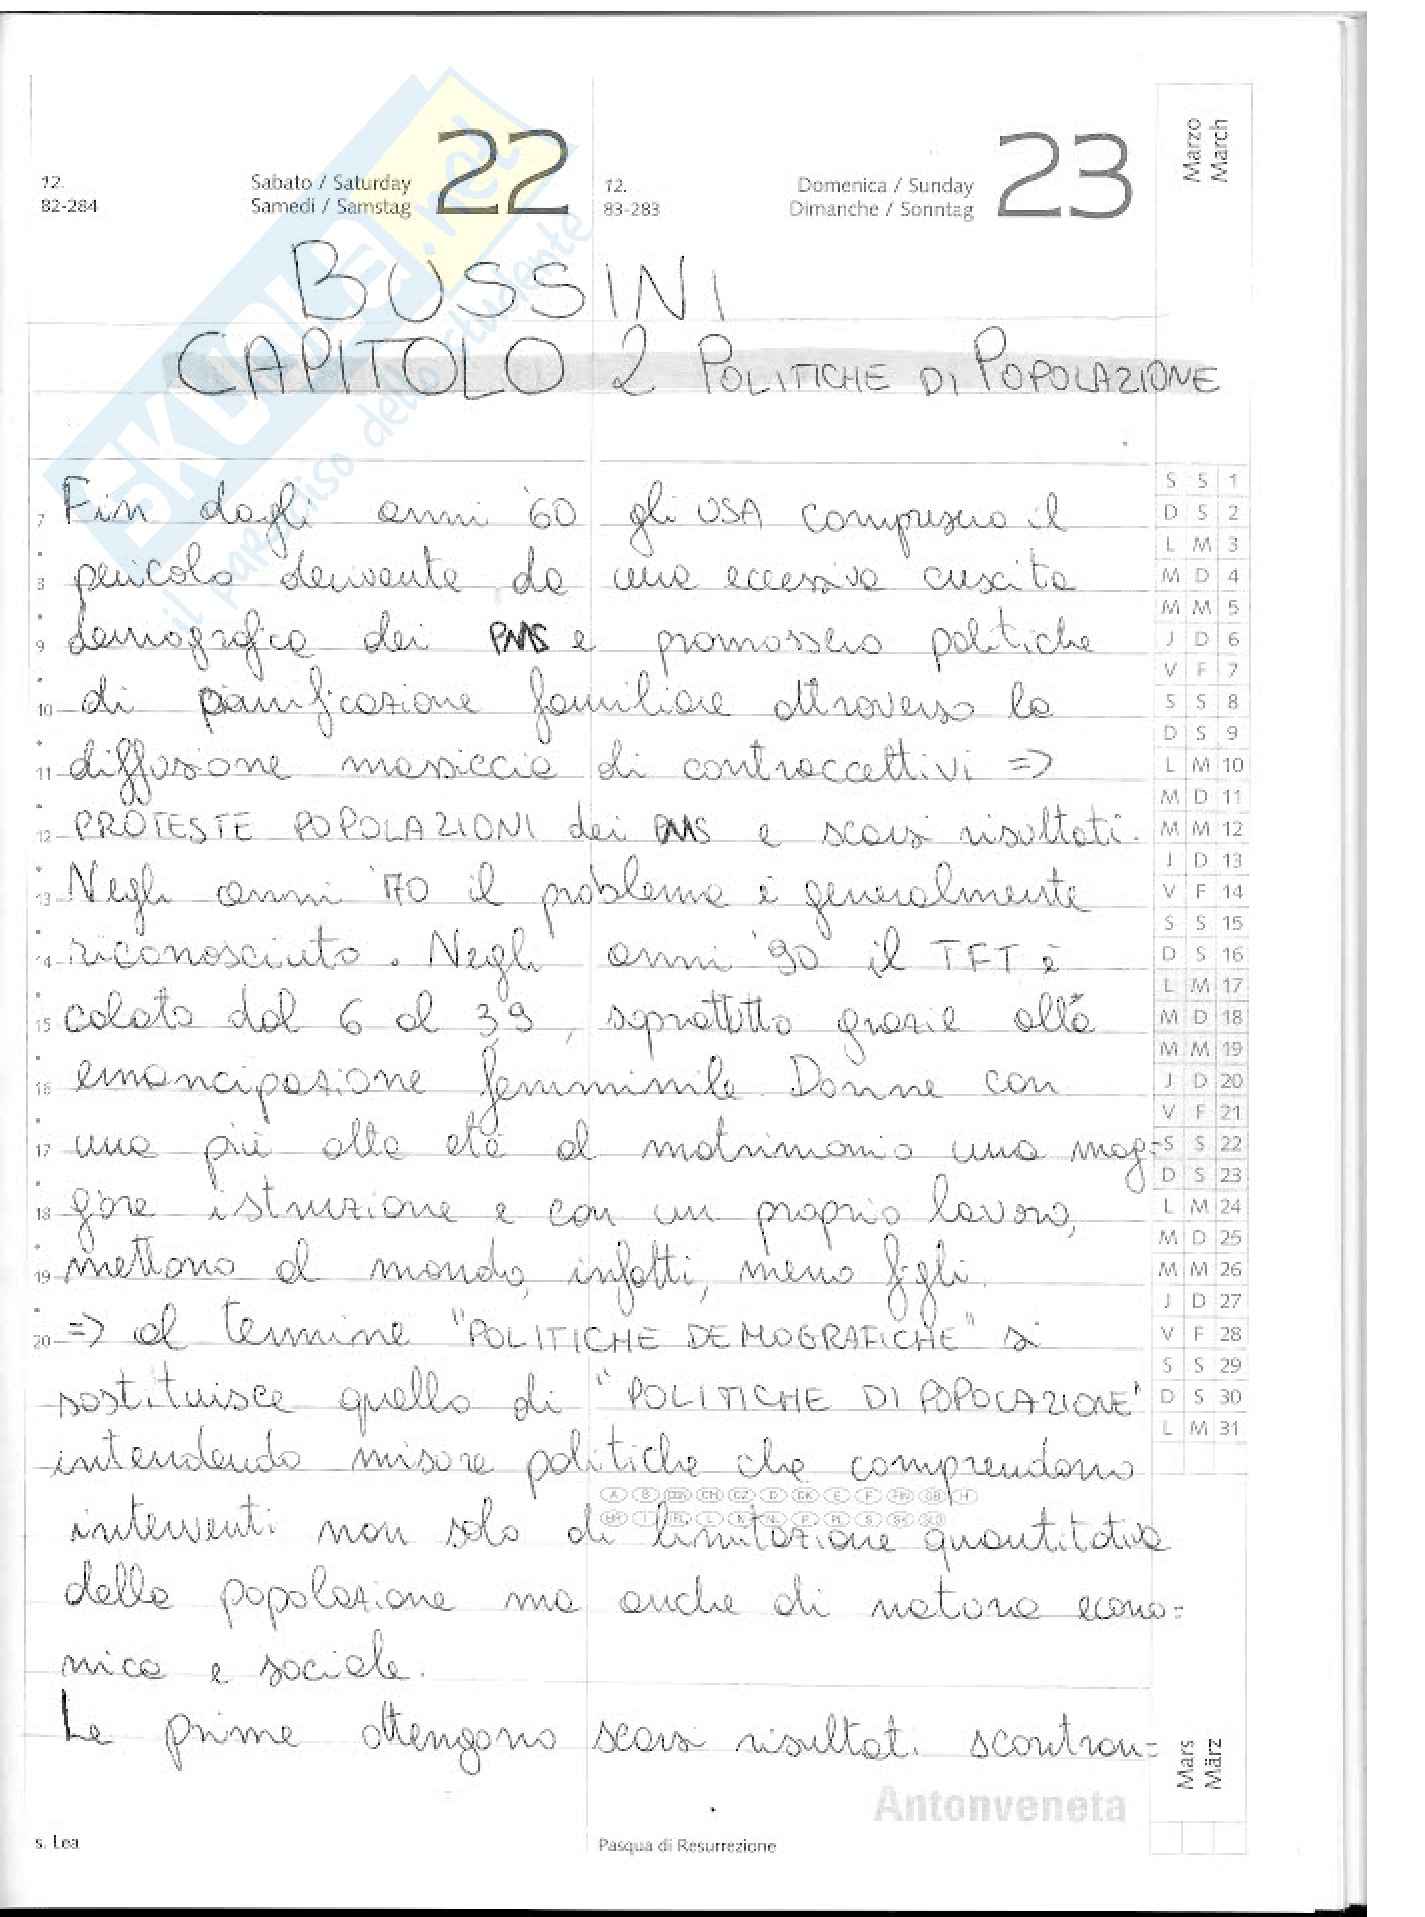 Marzo
March
22
23
12.
Sabato / Saturday
12.
Domenica / Sunday
82-284
Samedi / Samstag
83-283
Dimanche / Sonntag
SKUOLA.net
il paradiso dello studente
BUSSINI
CAPITOLO 2 POLITICHE DI POPOLAZIONE
Fin dagli anni '60 gli USA compresero il
pericolo derivante da una eccessiva crescita
demografica dei PMS e promossero politiche
di pianificazione familiare attraverso la
diffusione massiccia di contraccettivi =>
PROTESTE POPOLAZIONI dei PMS e scarsi risultati.
Negli anni '70 il problema è generalmente
riconosciuto. Negli anni '90 il TFT è
calato dal 6 al 3,9, soprattutto grazie alla
emancipazione femminile. Donne con
una più alta età al matrimonio una mag=
giore istruzione e con un proprio lavoro,
mettono al mondo, infatti, meno figli.
=> al termine "POLITICHE DEMOGRAFICHE" si
sostituisce quello di "POLITICHE DI POPOLAZIONE"
intendendo misure politiche che comprendono
interventi non solo di limitazione quantitativa
della popolazione ma anche di natura econo=
mica e sociale.
Le prime ottengono scarsi risultati scontran=
7
8
9
10
11
12
13
14
15
16
17
18
19
20
S S 1
D S 2
L M 3
M D 4
M M 5
J D 6
V F 7
S S 8
D S 9
L M 10
M D 11
M M 12
J D 13
V F 14
S S 15
D S 16
L M 17
M D 18
M M 19
J D 20
V F 21
S S 22
D S 23
L M 24
M D 25
M M 26
J D 27
V F 28
S S 29
D S 30
L M 31
A B CH CZ D DK E F FIN GB H
I L N NL P PL S SK SLO
Mars
März
Antonveneta
s. Lea
Pasqua di Resurrezione